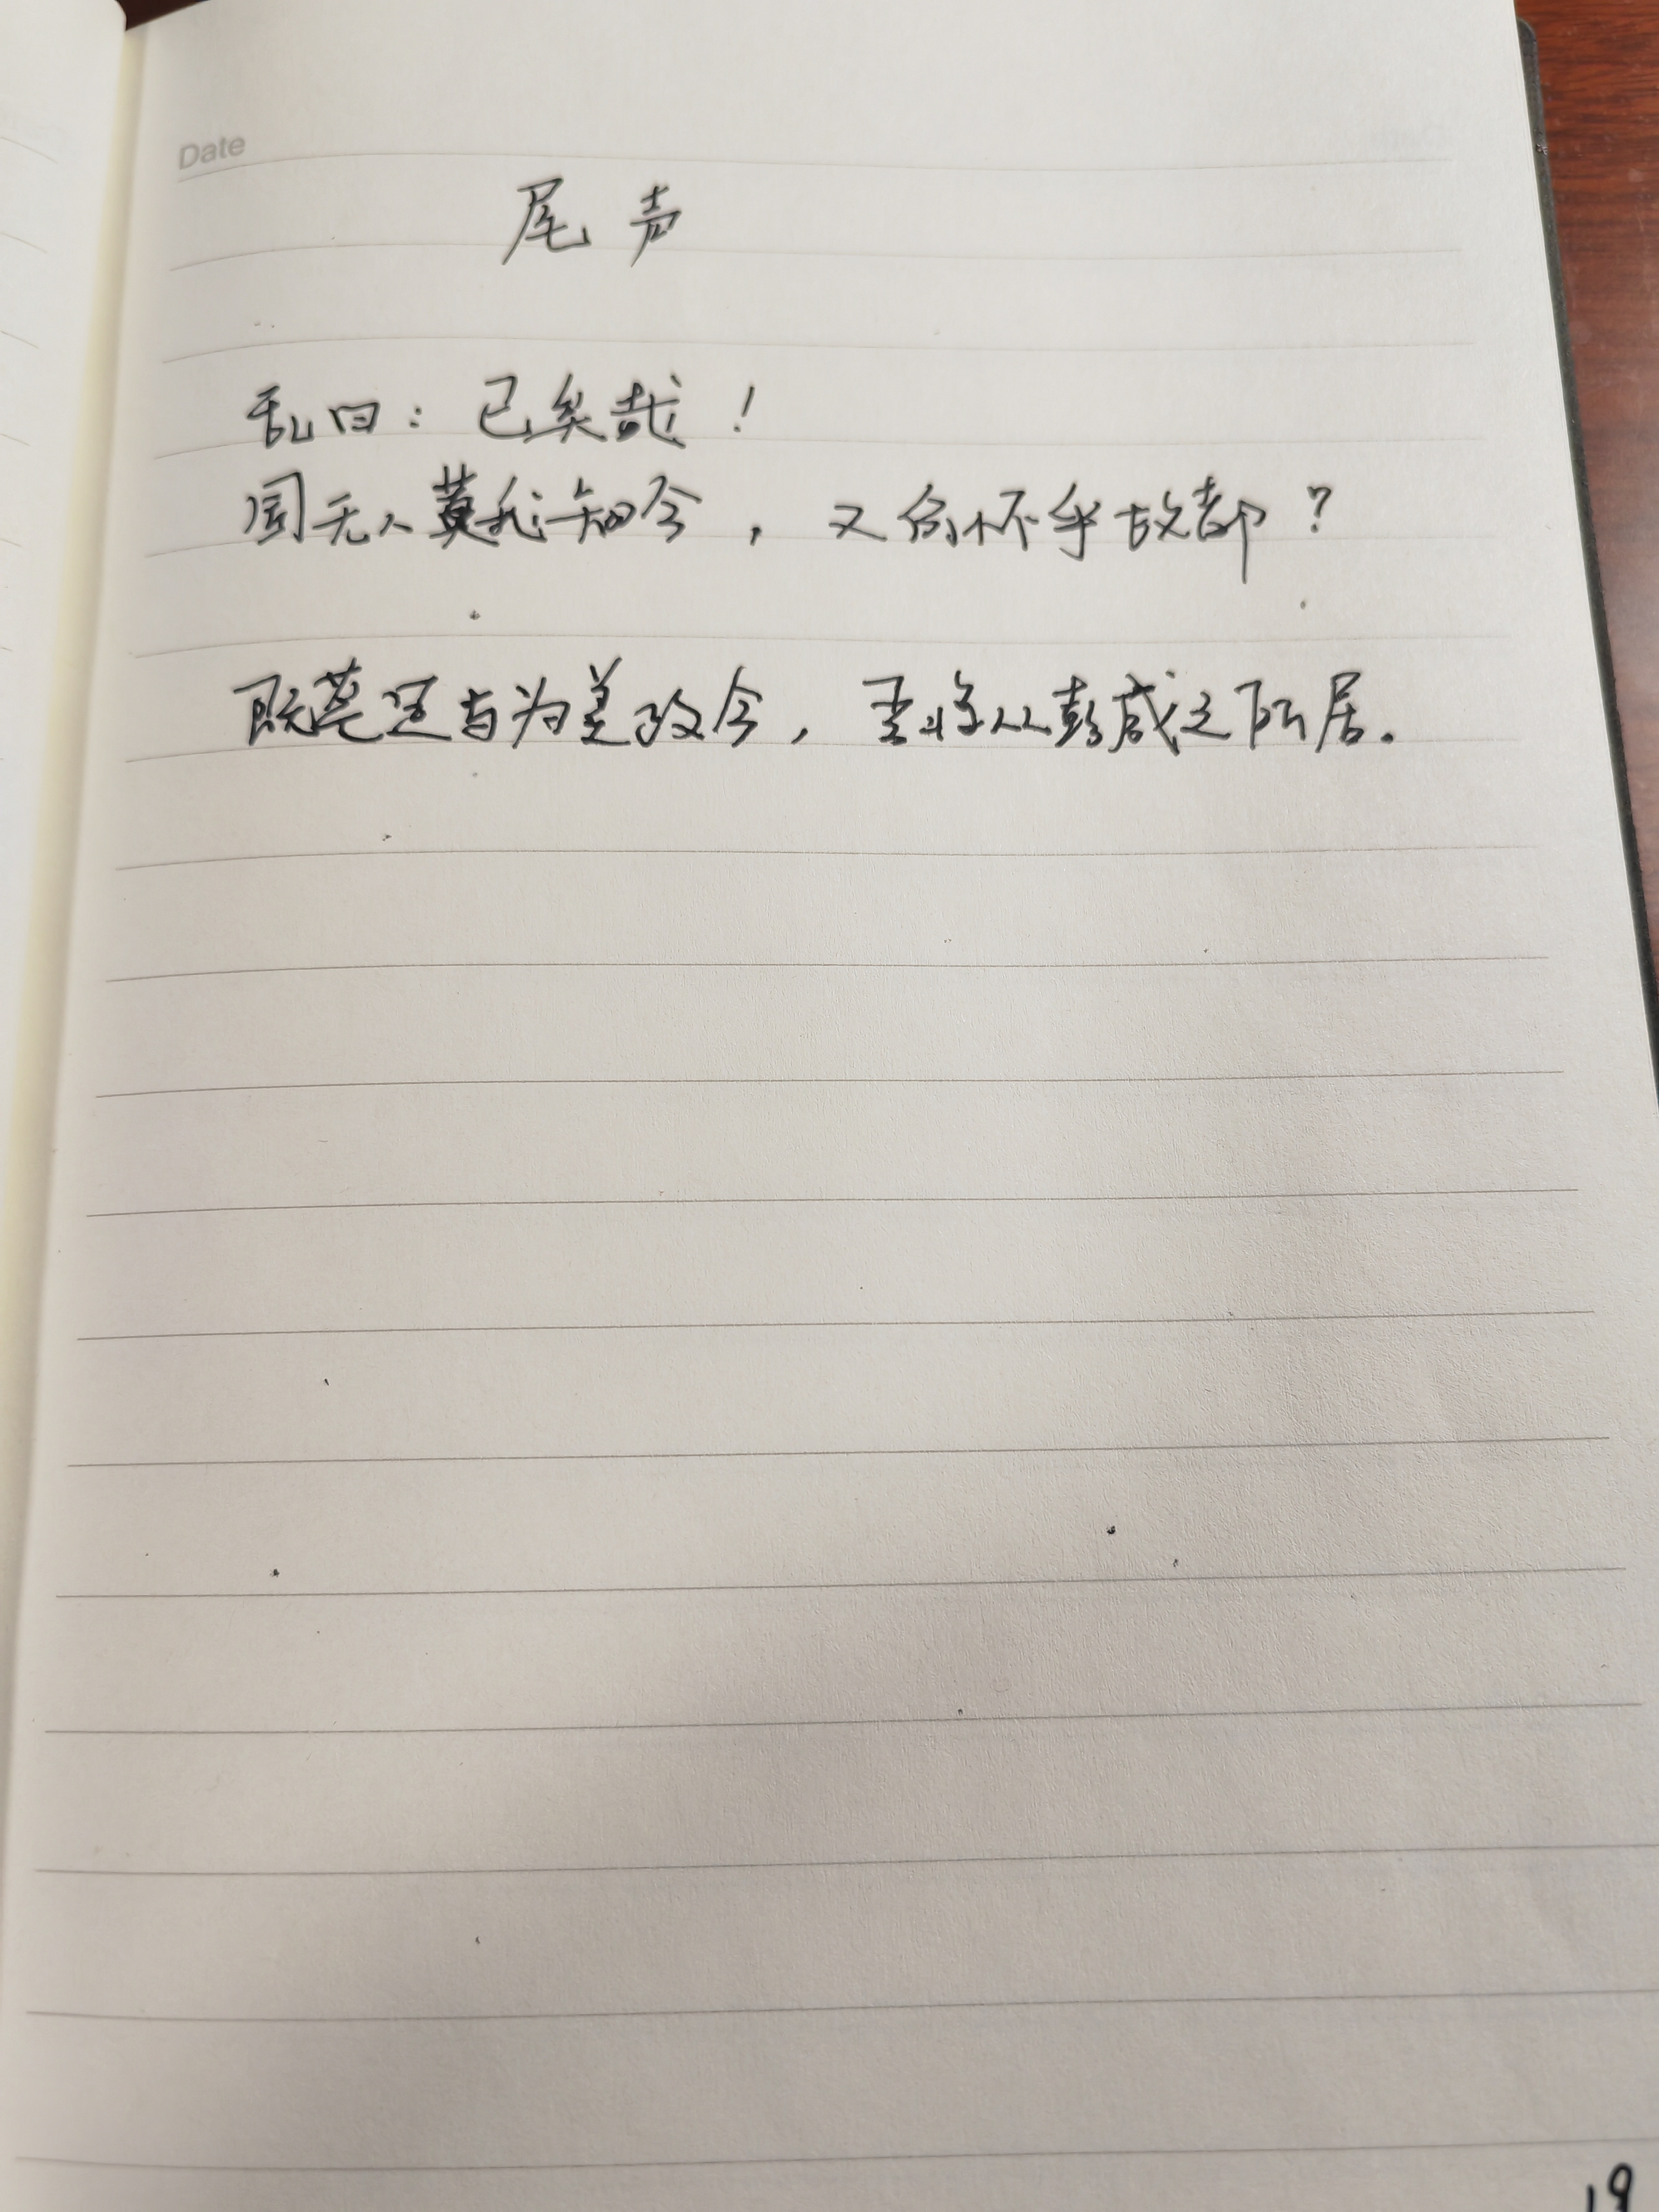 Date
尾声
乱曰：已矣哉！
国无人莫我知兮，又何怀乎故都？
既莫足与为美政兮，吾将从彭咸之所居。
19